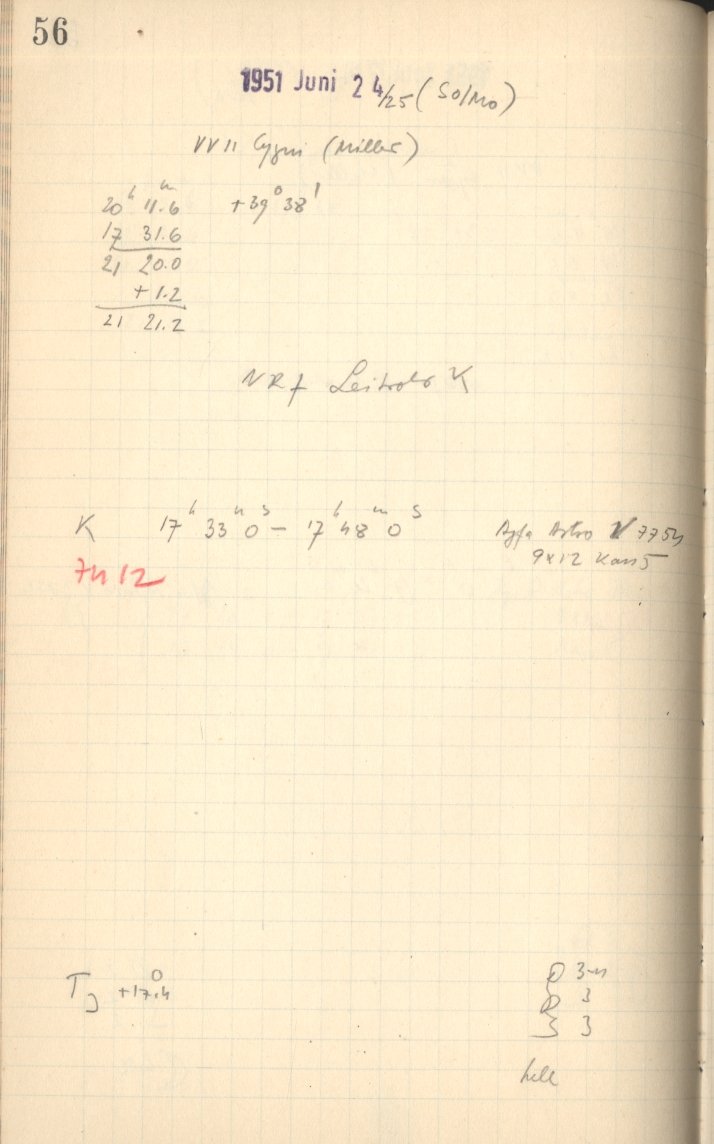 56
1951 Juni 24/25 (So/Mo)
VV 11 Cygni (Miller)
20h 11.6m +39° 38'
17 31.6
21 20.0
+ 1.2
21 21.2
K 17h 33m 0s – 17h 48m 0s Agfa Astro 
9x12 Kas 5
7412
+17.4°
3-4
3
3
hell